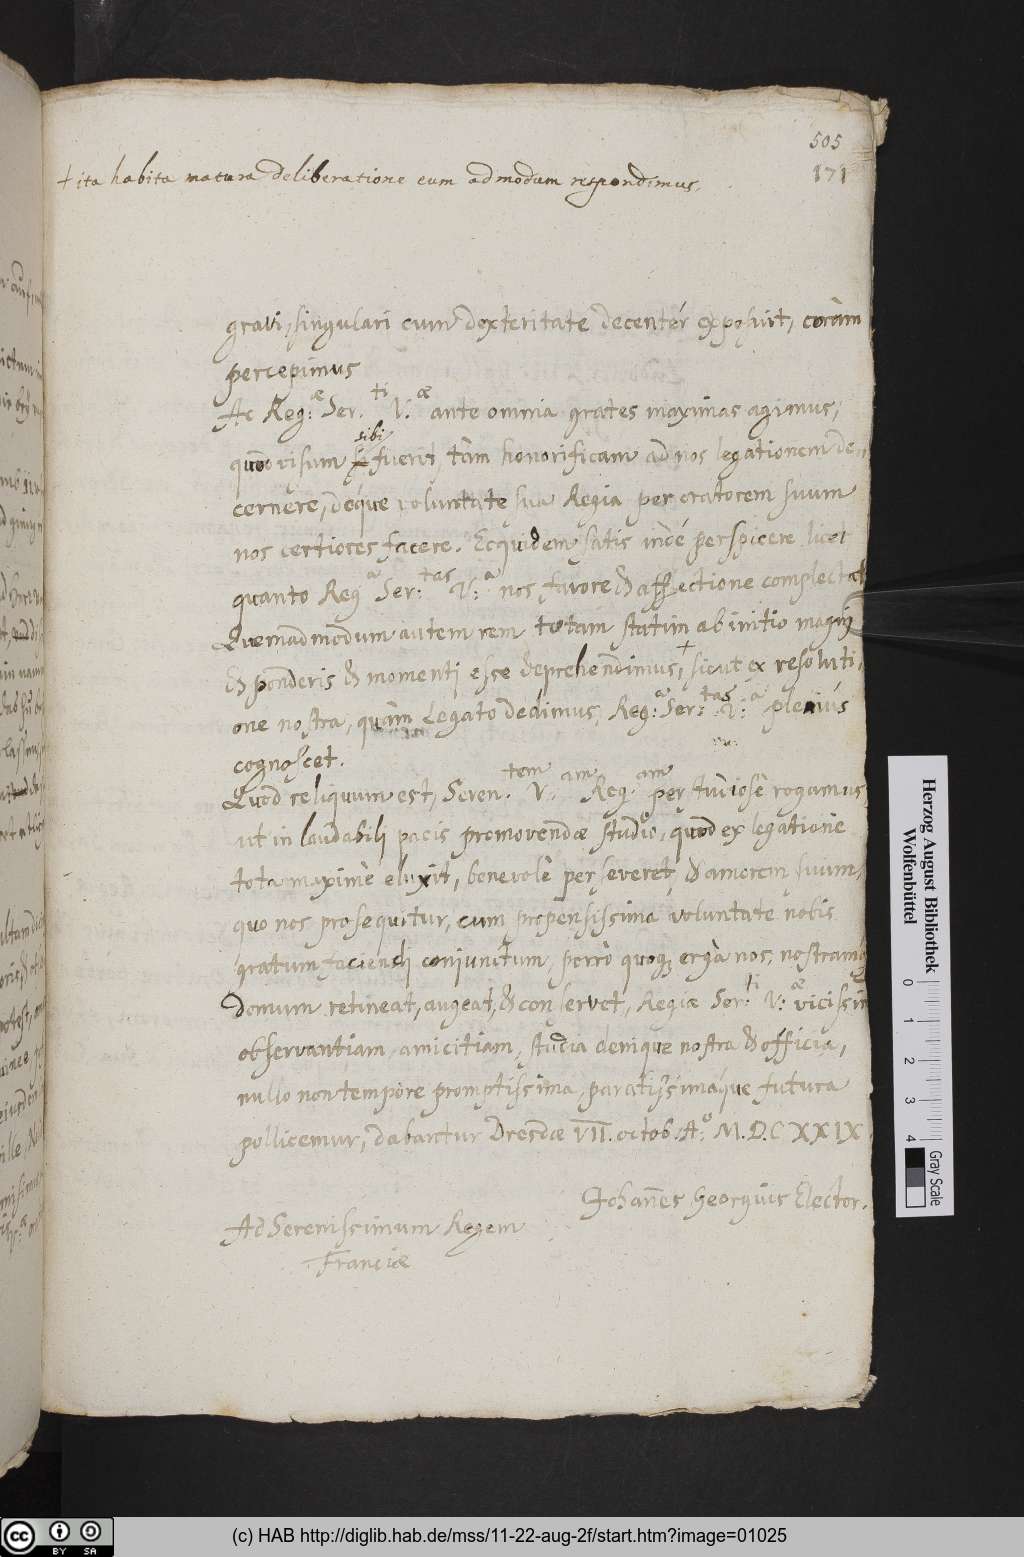 505
171
+ ita habita matura deliberatione eum admodum respondimus.
gravi, singulari cum dexteritate decentér exposuit, coràm
percepimus
Ac Reg:æ Ser.ti V:æ ante omnia grates maximas agimus,
quòd visum sibi fuerit, tàm honorificam ad nos legationem de-
cernere, déque voluntate sua Regia per oratorem suum
nos certiores facere. Ecquidem satis indé perspicere licet
quanto Reg.a Ser:tas V:a nos favore & affectione complectat
Quemadmodum autem rem totam statim ab initio magni
& ponderis & momenti esse deprehendimus,+ sicut ex resoluti-
one nostra, quàm Legato dedimus, Reg:a Ser:tas V:a pleniús
cognoscet.
Quod reliquum est, Seren.tem V.am Reg.am perstudiosè rogamus
ut in laudabili pacis promovendæ studio, quod ex legatione
tota maximè eluxit, benevolè perseveret, & amorem suum,
quo nos prosequitur, cum propensissima voluntate nobis
gratum faciendi coniunctum, porrò quoq; ergà nos, nostramq
Domum retineat, augeat, & conservet, Regiæ Ser:ti V:æ vicissim
observantiam, amicitiam, studia denique nostra & officia,
nullo non tempore promptissima, paratissimáque futura
pollicemur, dabantur Dresdæ VII. octob. Aº. M.D.C XXIX.
Johañes Georgius Elector.
Ad Serenissimum Regem
Franciæ
Herzog August Bibliothek
Wolfenbüttel
0 1 2 3 4
Gray Scale
cc BY SA
(c) HAB http://diglib.hab.de/mss/11-22-aug-2f/start.htm?image=01025